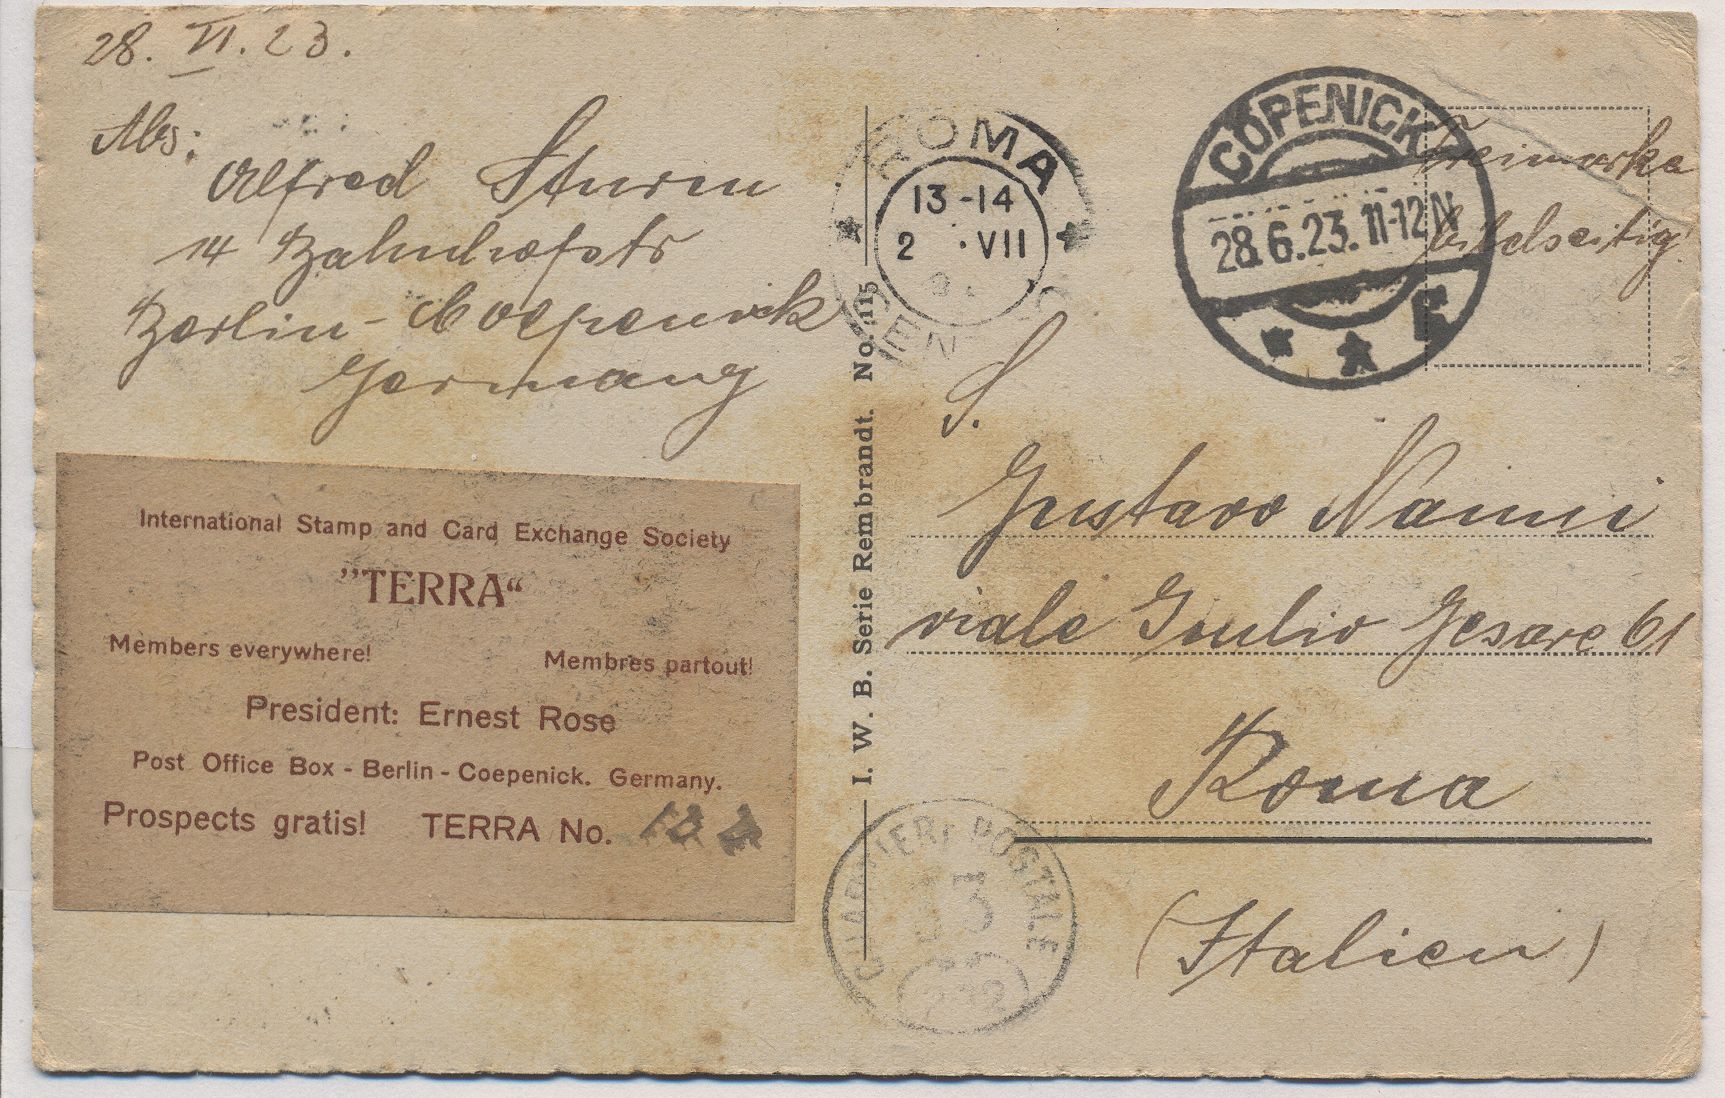 28. VI. 23.
Abs:
Alfred Sturm
14 Bahnhofstr
Berlin-Coepenick
Germany
International Stamp and Card Exchange Society
"TERRA“
Members everywhere! Membres partout!
President: Ernest Rose
Post Office Box - Berlin - Coepenick. Germany.
Prospects gratis! TERRA No.
I. W. B. Serie Rembrandt. No. 115
ROMA
13-14
2 VII
CÖPENICK
28.6.23. 11-12 N
Freimarke
bildseitig
S.
Gustavo Nanni
viale Giulio Cesare 61
Roma
(Italien)
QUARTIERE POSTALE
13